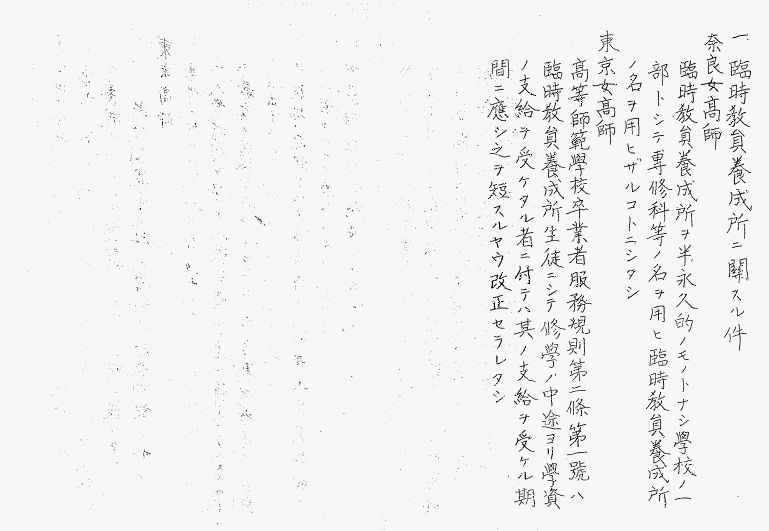 一 臨時敎員養成所ニ關スル件
奈良女高師
臨時敎員養成所ヲ半永久的ノモノトナシ學校ノ一
部トシテ專修科等ノ名ヲ用ヒ臨時敎員養成所
ノ名ヲ用ヒザルコトニシタシ
東京女高師
高等師範學校卒業者服務規則第二條第一號ハ
臨時敎員養成所生徒ニシテ修學ノ中途ヨリ學資
ノ支給ヲ受ケタル者ニ付テハ其ノ支給ヲ受ケル期
間ニ應シ之ヲ短スルヤウ改正セラレタシ